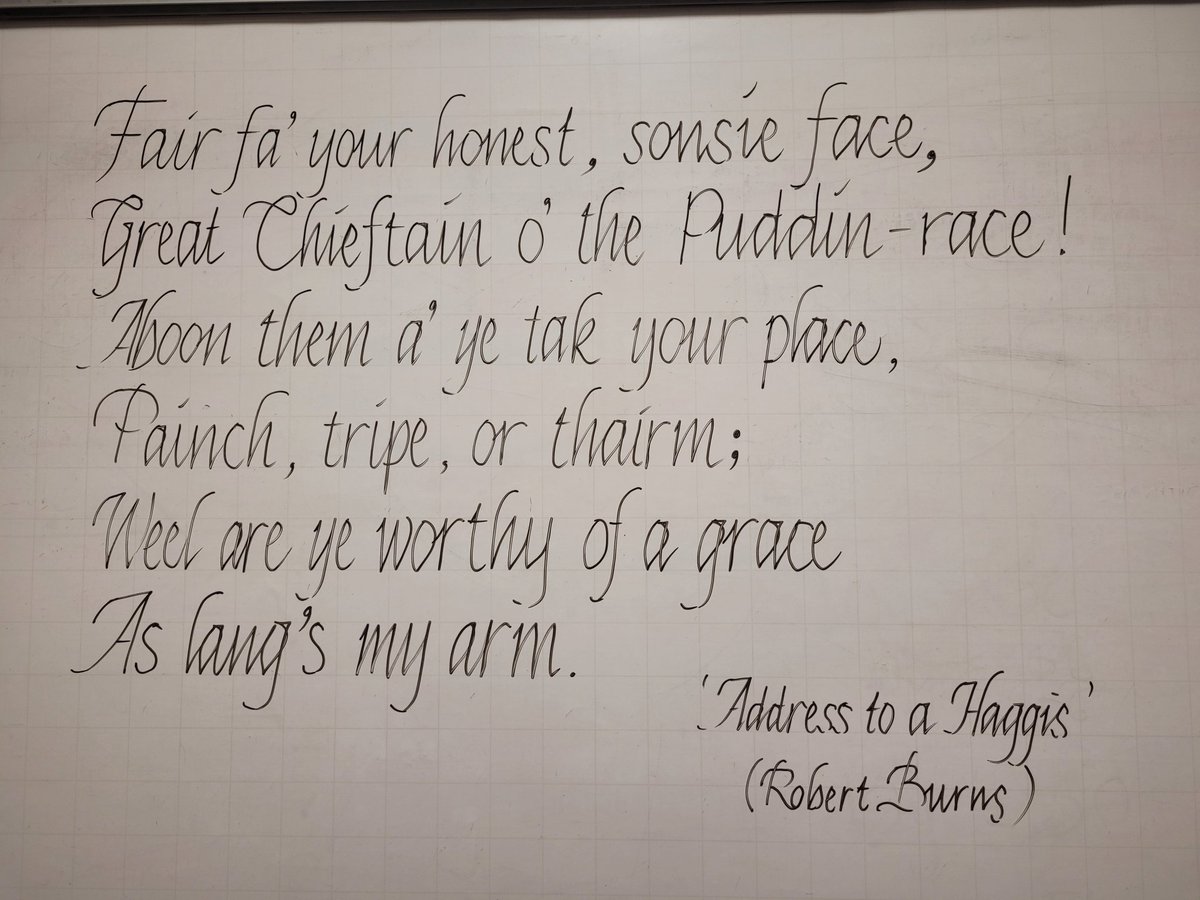 Fair fa' your honest, sonsie face,
Great Chieftain o' the Puddin-race!
Aboon them a' ye tak your place,
Painch, tripe, or thairm;
Weel are ye worthy of a grace
As lang's my arm.
'Address to a Haggis'
(Robert Burns)